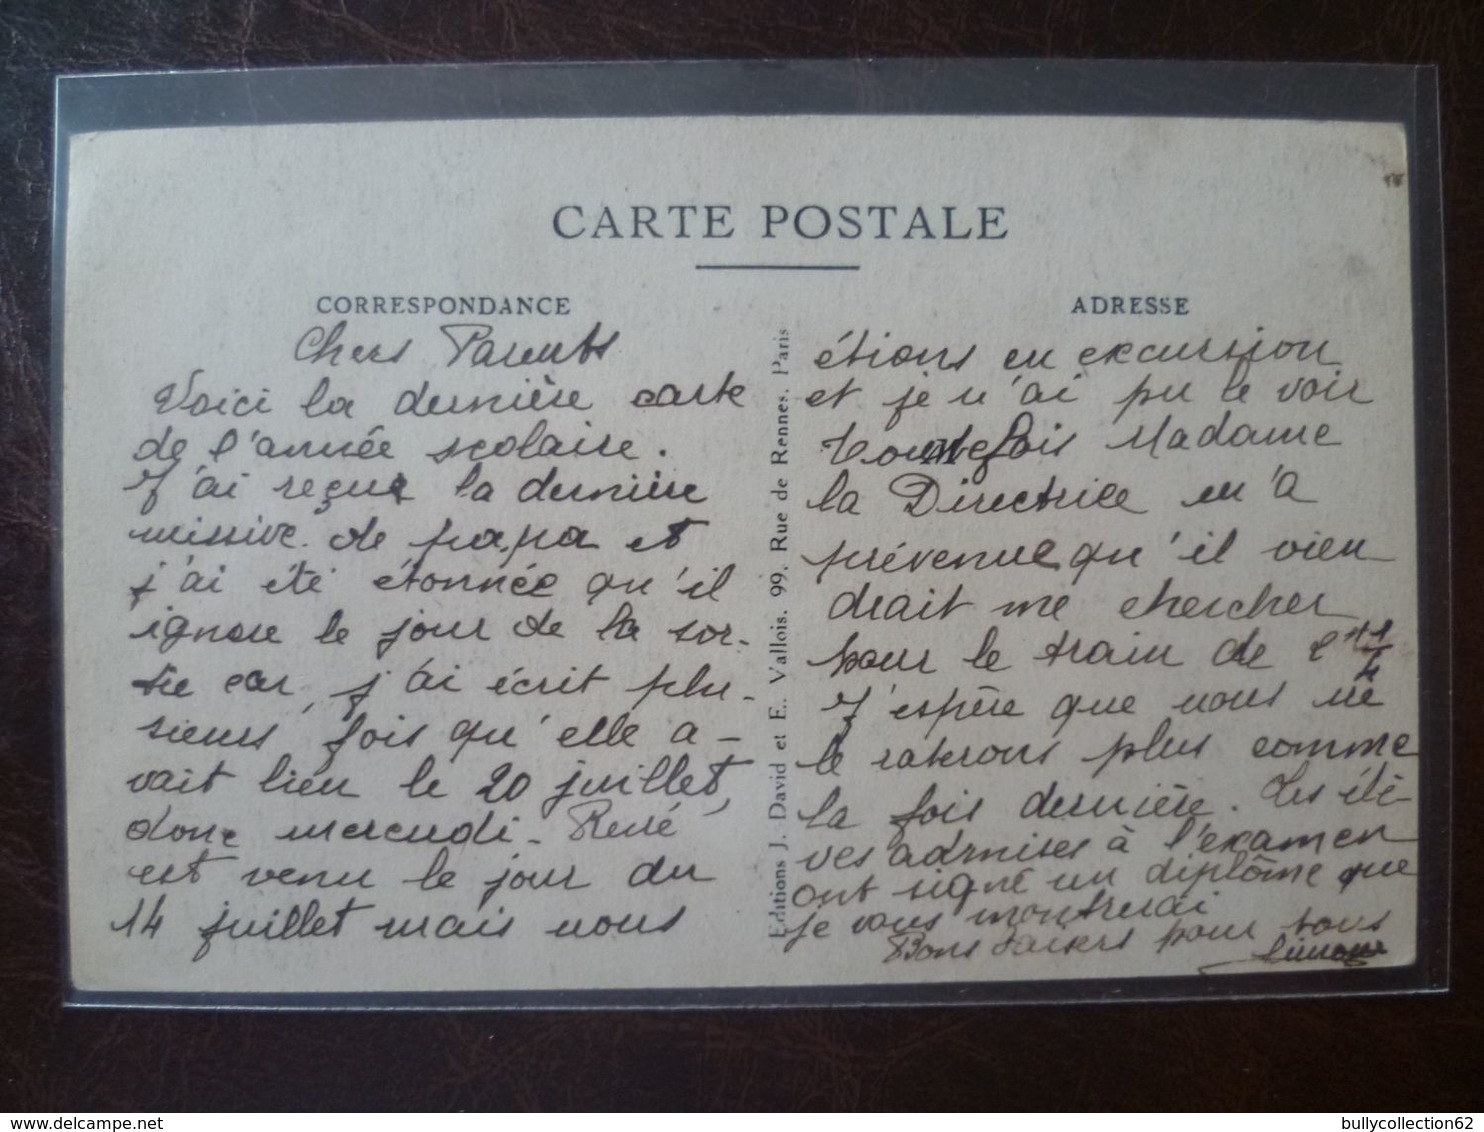 CARTE POSTALE
CORRESPONDANCE
Chers Parents
Voici la dernière carte
de l'année scolaire.
J'ai reçue la dernière
missive de papa et
j'ai été étonnée qu'il
ignore le jour de la sor-
tie car, j'ai écrit plu-
sieurs fois qu'elle a-
vait lieu le 20 juillet,
donc mercredi. René
est venu le jour du
14 juillet mais nous
Editions J. David et E. Vallois. 99. Rue de Rennes. Paris
ADRESSE
étions en excursion
et je n'ai pu le voir
Toutefois Madame
la Directrice m'a
prévenue qu'il vien
drait me chercher
pour le train de 2H 1/4
J'espère que nous ne
le raterons plus comme
la fois dernière. Les élè-
ves admises à l'examen
ont signé un diplôme que
je vous montrerai
Bons baisers pour tous
Simone
bullycollection62